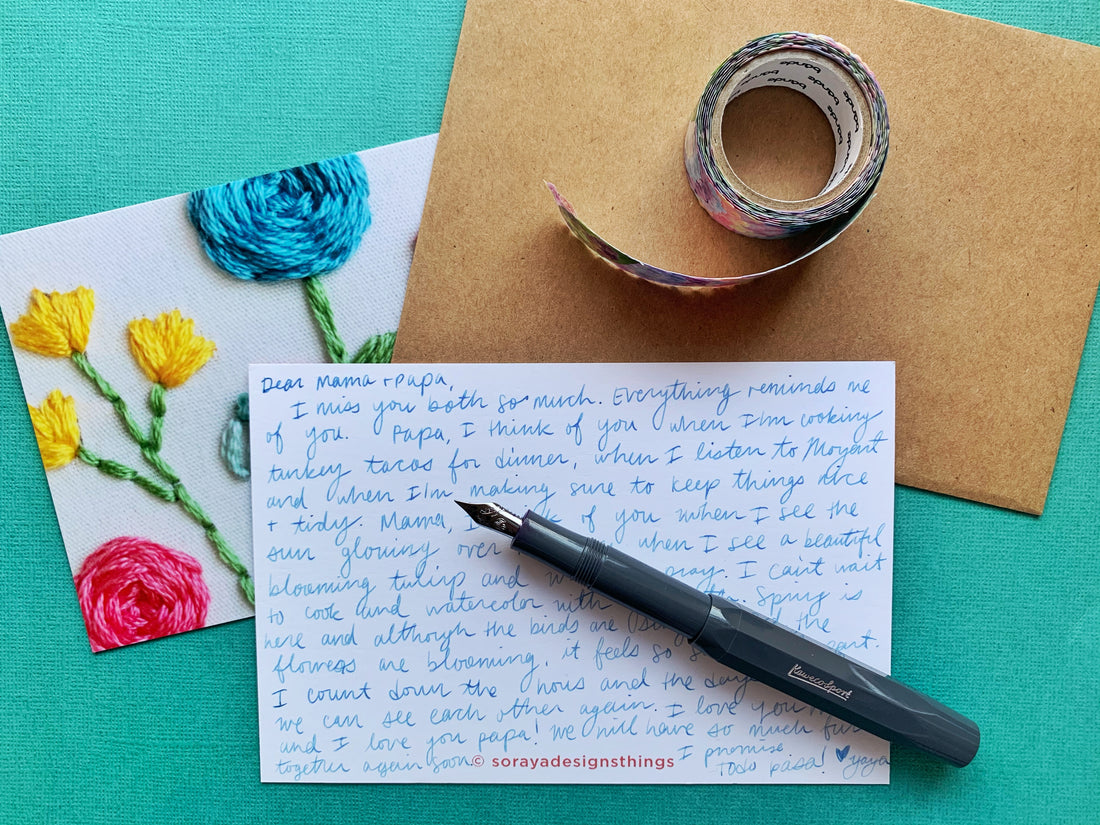 bande bande bande bande bande
Dear Mama + Papa,
I miss you both so much. Everything reminds me
of you. Papa, I think of you when I'm cooking
turkey tacos for dinner, when I listen to Mozart
and when I'm making sure to keep things nice
+ tidy. Mama, I of you when I see the
sun glowing over when I see a beautiful
blooming tulip and pray. I can't wait
to cook and watercolor with Spring is
here and although the birds are the
flowers are blooming, it feels so
I count down the hours and the days
we can see each other again. I love you
and I love you papa! We will have so much fun
together again soon. I promise
Todo pasa! ♥ yaya
Kaweco Sport
© sorayadesignsthings